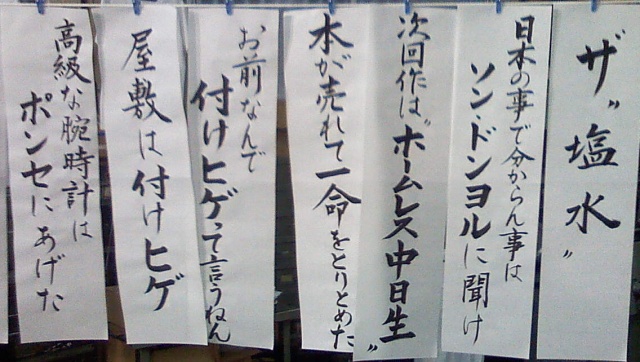 ザ〝塩水〟
日本の事で分からん事は
ソン・ドンヨルに聞け
次回作は〝ホームレス中日生〟
本が売れて一命をとりとめた
お前なんで
付けヒゲって言うねん
屋敷は付けヒゲ
高級な腕時計は
ポンセにあげた